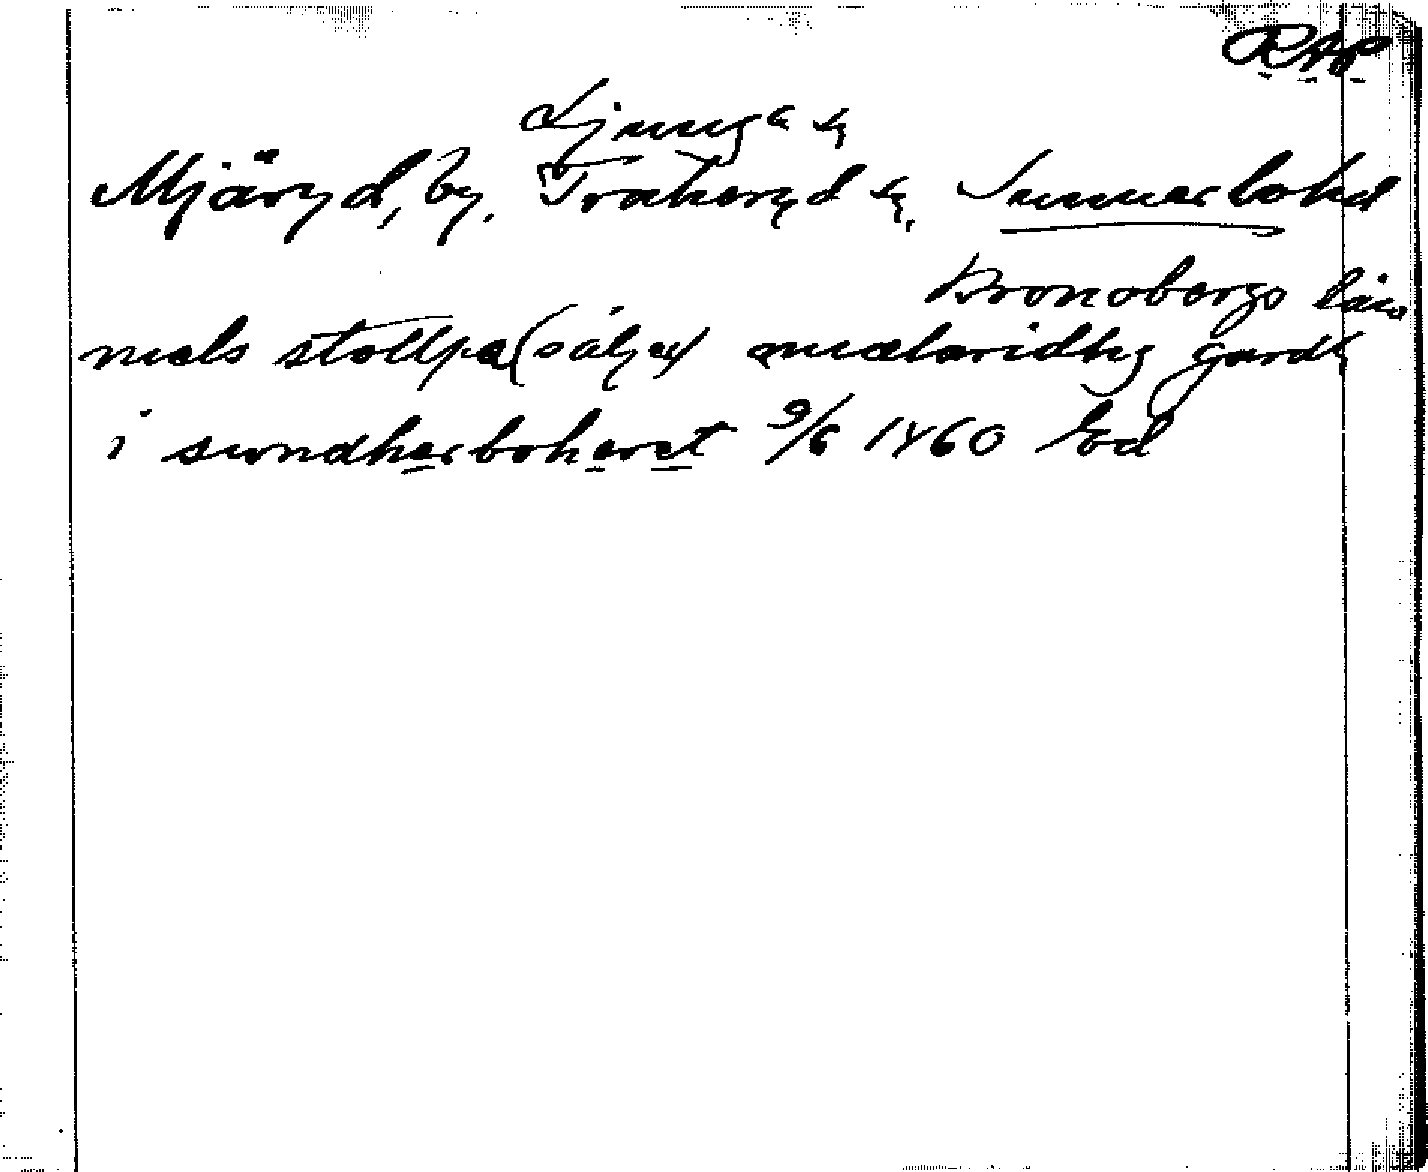 RAP
Ljunga sn
Mjäryd, by. Traheryd sn, Sunnerbohd
Kronobergs län
niels stollpa (säljer) mielæridhg gardh
i sundherboheret 9/6 1460 Ed